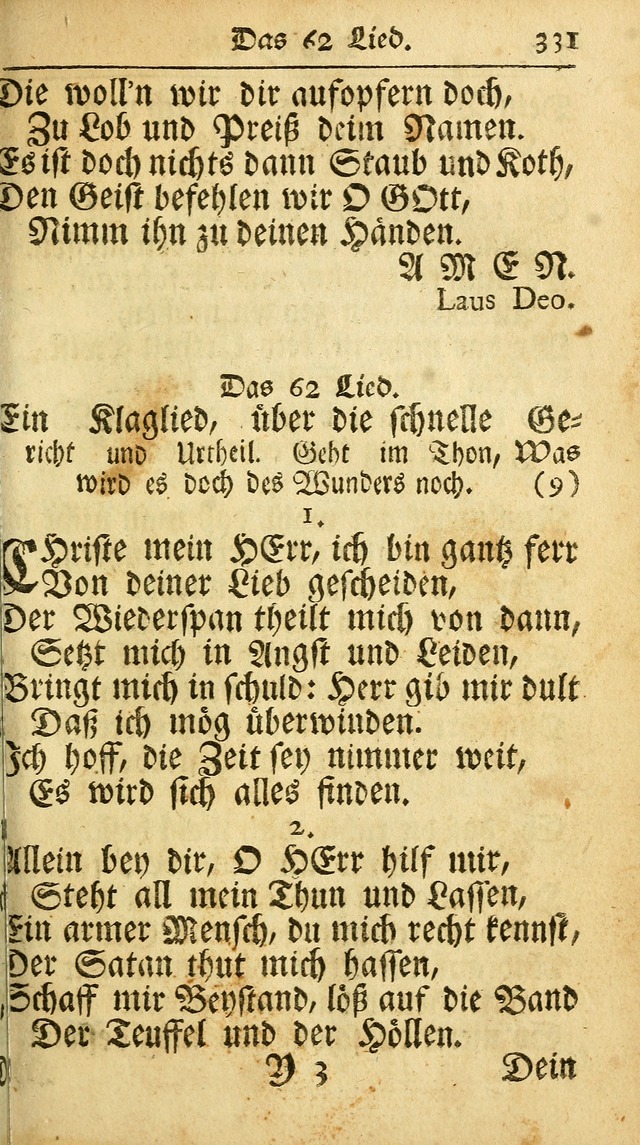 Das 62 Lied. 331
Die woll'n wir dir aufopfern doch,
Zu Lob und Preiß deim Namen.
Es ist doch nichts dann Staub und Koth,
Den Geist befehlen wir O GOtt,
Nimm ihn zu deinen Händen.
A M E N.
Laus Deo.
Das 62 Lied.
Ein Klaglied, über die schnelle Ge-
richt und Urtheil. Geht im Thon, Was
wird es doch des Wunders noch. (9)
1.
CHriste mein HErr, ich bin gantz ferr
Von deiner Lieb gescheiden,
Der Wiederspan theilt mich von dann,
Setzt mich in Angst und Leiden,
Bringt mich in schuld: Herr gib mir dult
Daß ich mög überwinden.
Ich hoff, die Zeit sey nimmer weit,
Es wird sich alles finden.
2.
Allein bey dir, O HErr hilf mir,
Steht all mein Thun und Lassen,
Ein armer Mensch, du mich recht kennst,
Der Satan thut mich hassen,
Schaff mir Beystand, löß auf die Band
Der Teuffel und der Höllen.
Y 3 Dein